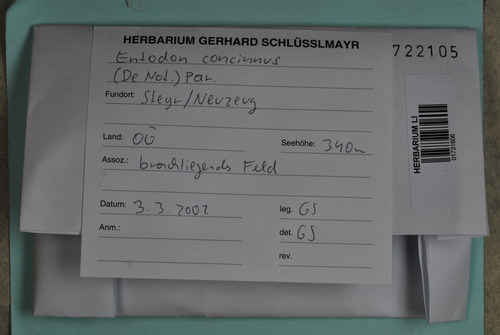 HERBARIUM GERHARD SCHLÜSSLMAYR
Entodon concinnus
(De Not.) Par.
Fundort: Steyr/Neuzeug
Land: OÖ Seehöhe: 340m
Assoz.: brachliegends Feld
Datum: 3.3.2002 leg. GS
Anm.: det. GS
rev.
722105
HERBARIUM LI
01731606